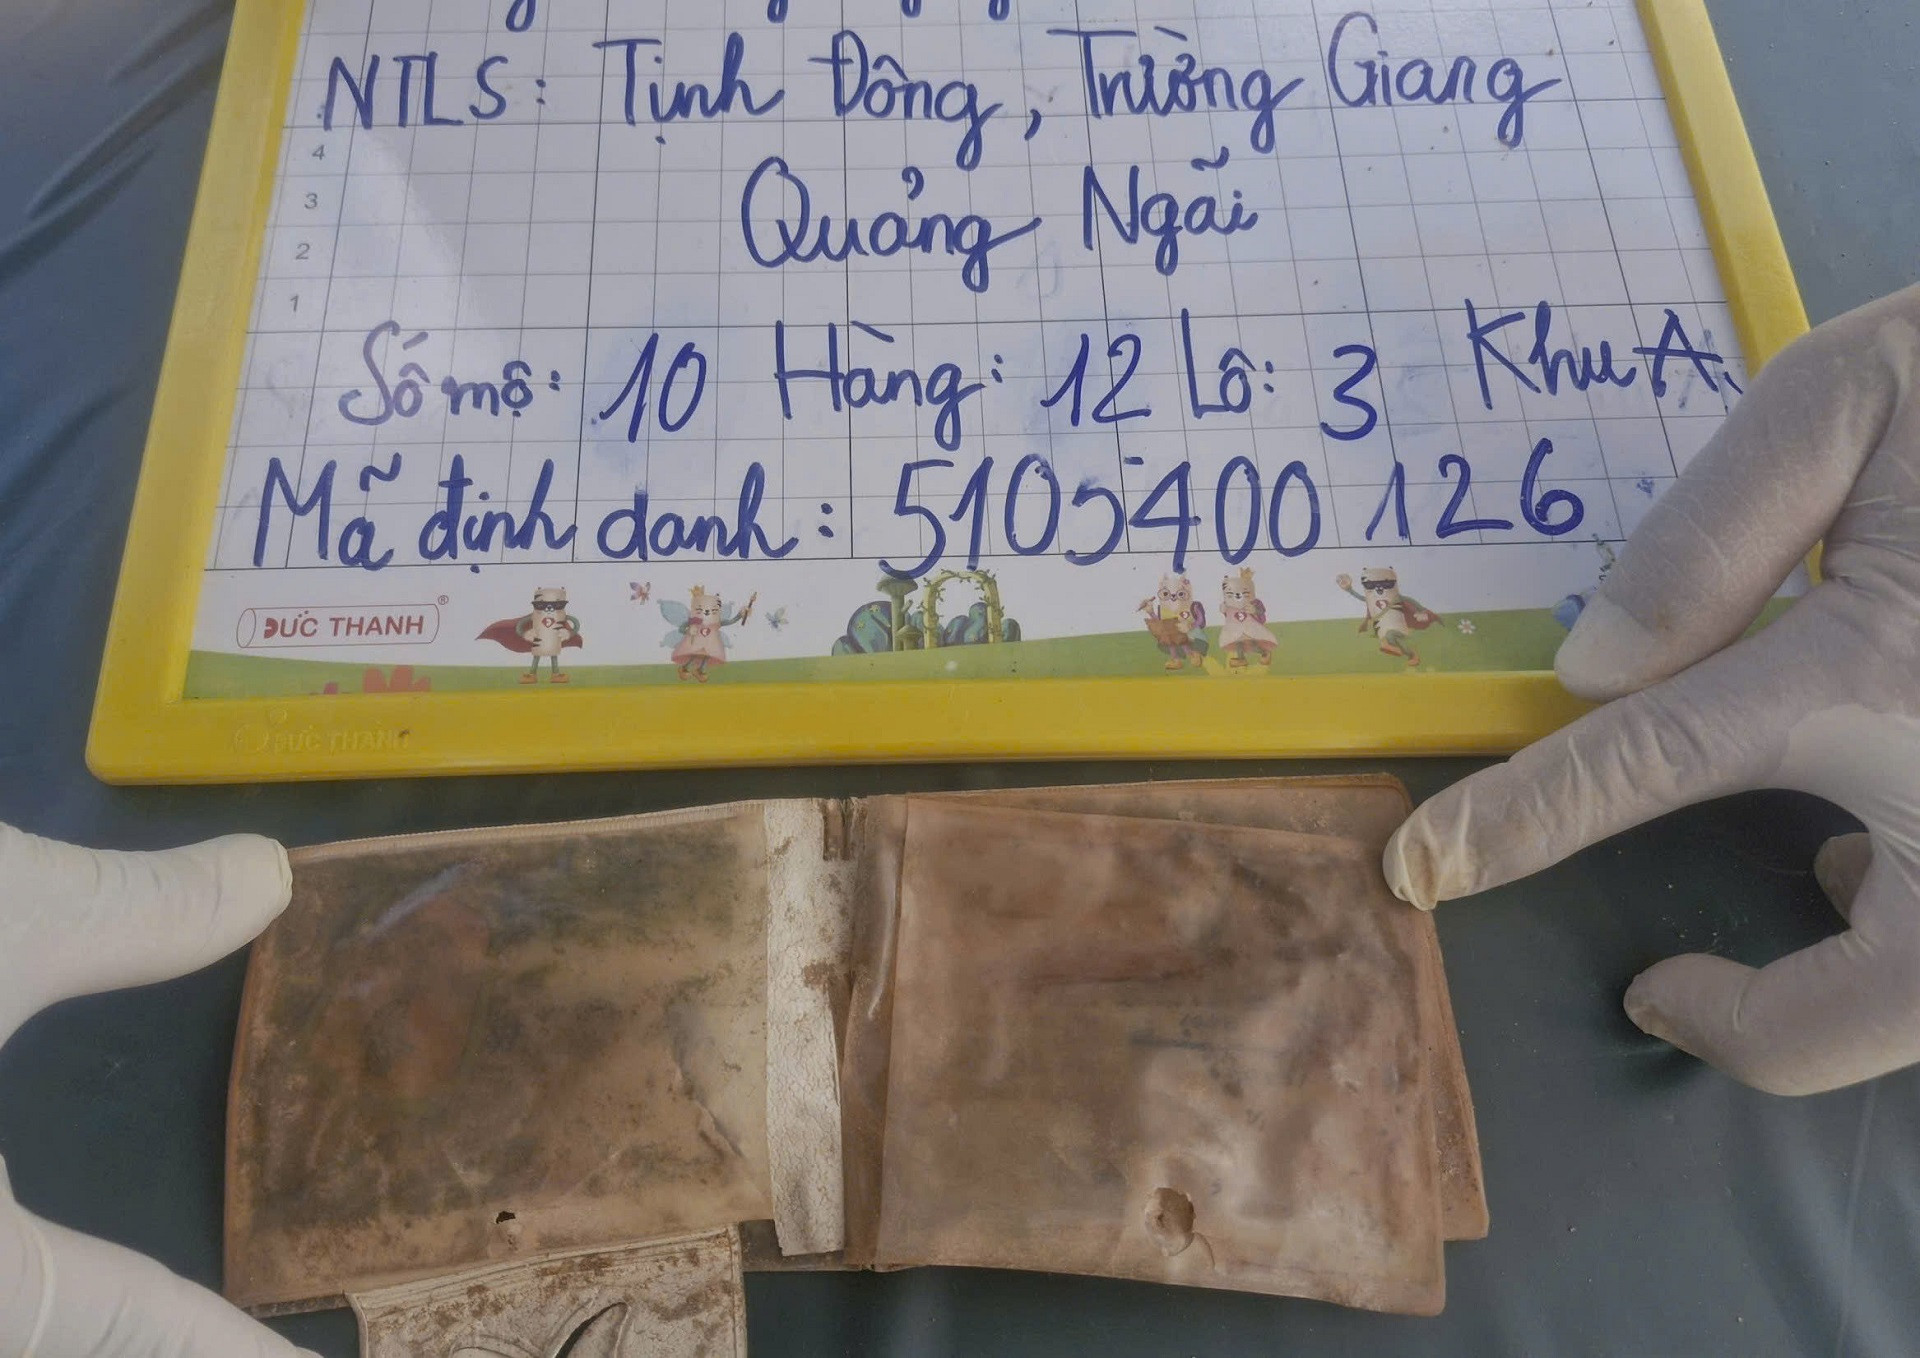 NTLS: Tịnh Đông, Trường Giang
Quảng Ngãi
4
3
2
1
Số mộ: 10 Hàng: 12 Lô: 3 Khu A
Mã định danh: 5105400126
ĐỨC THANH ®
ĐỨC THANH